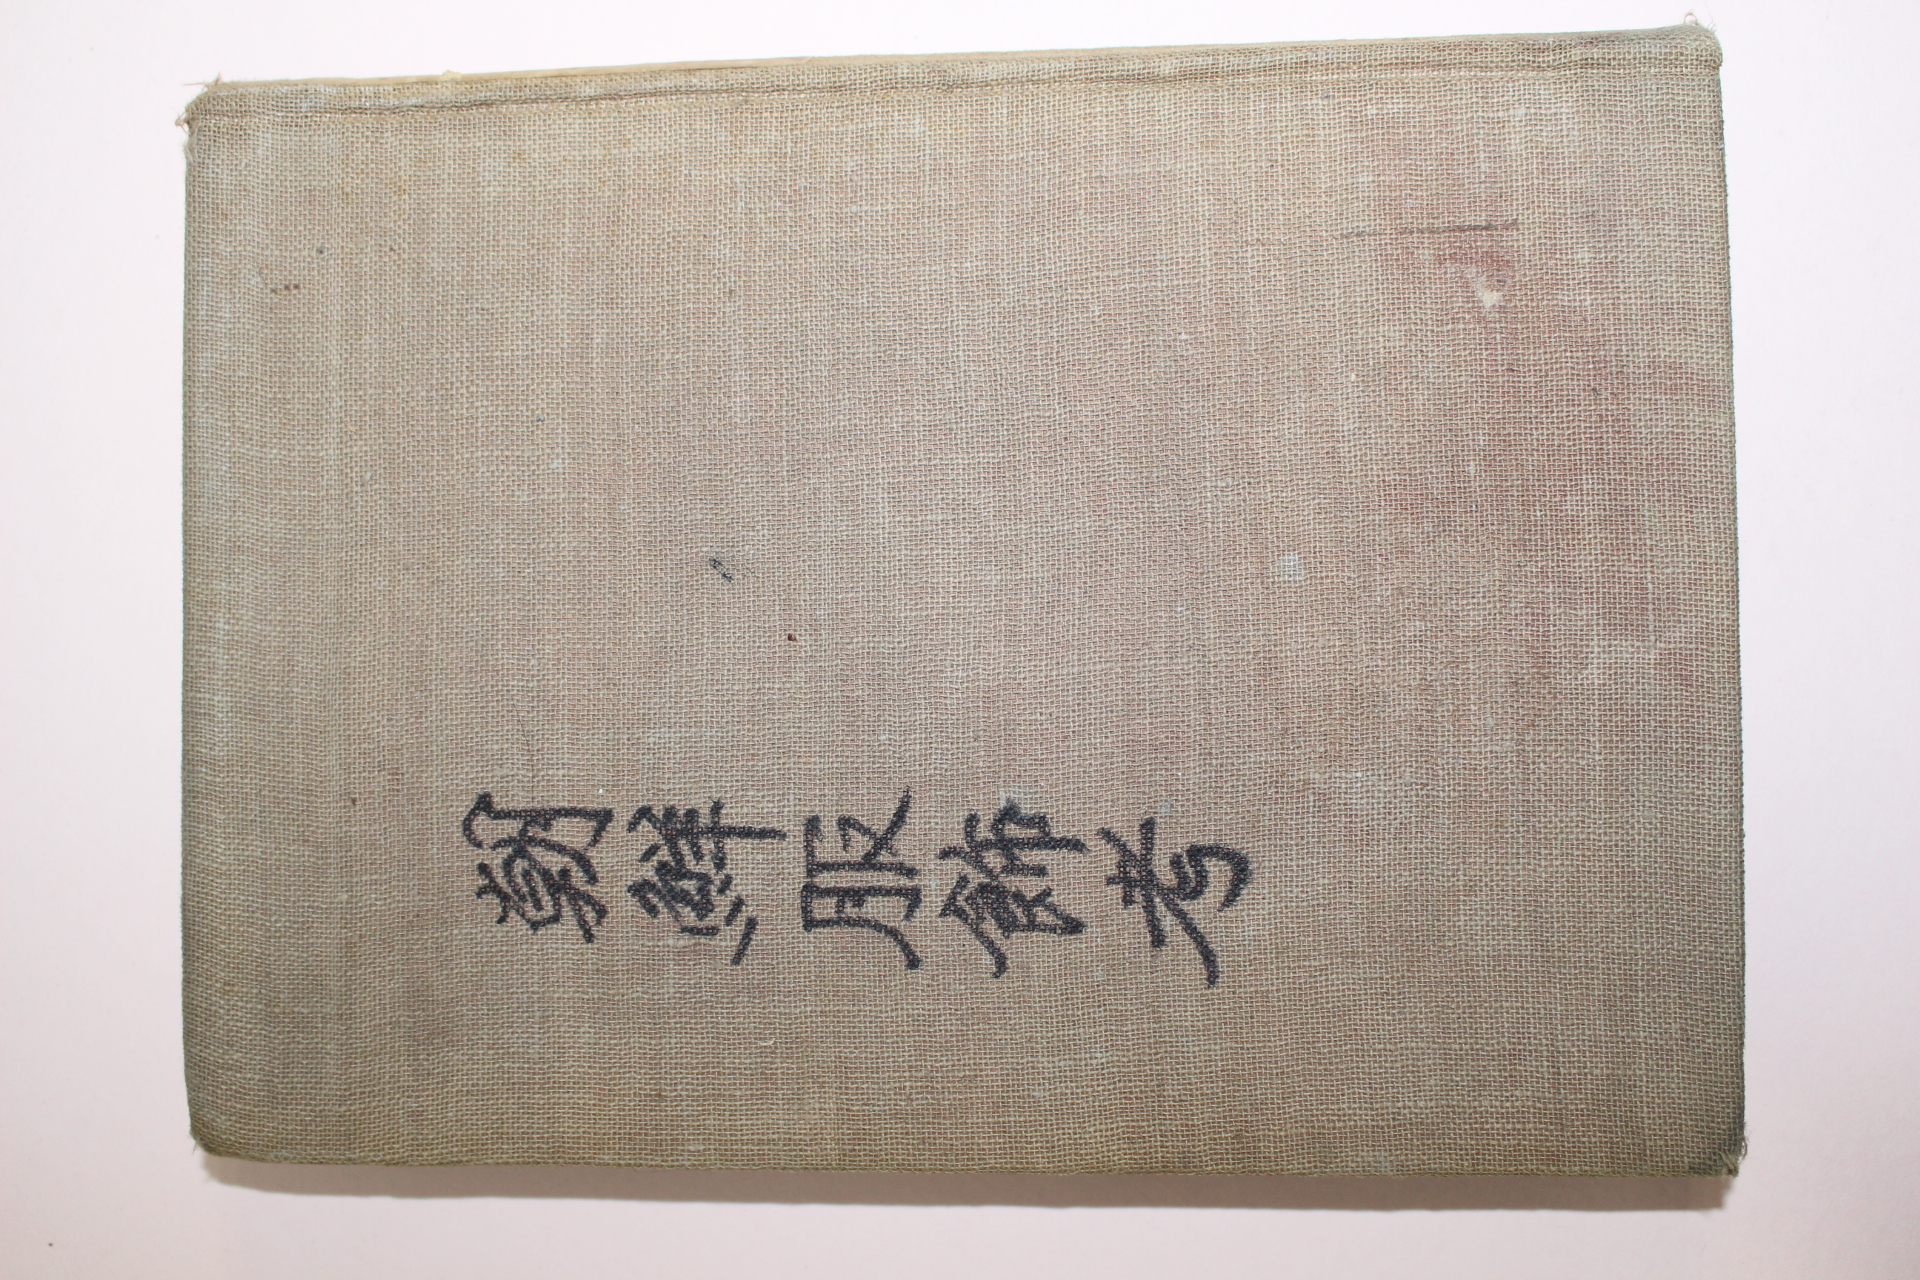 朝鮮服飾考